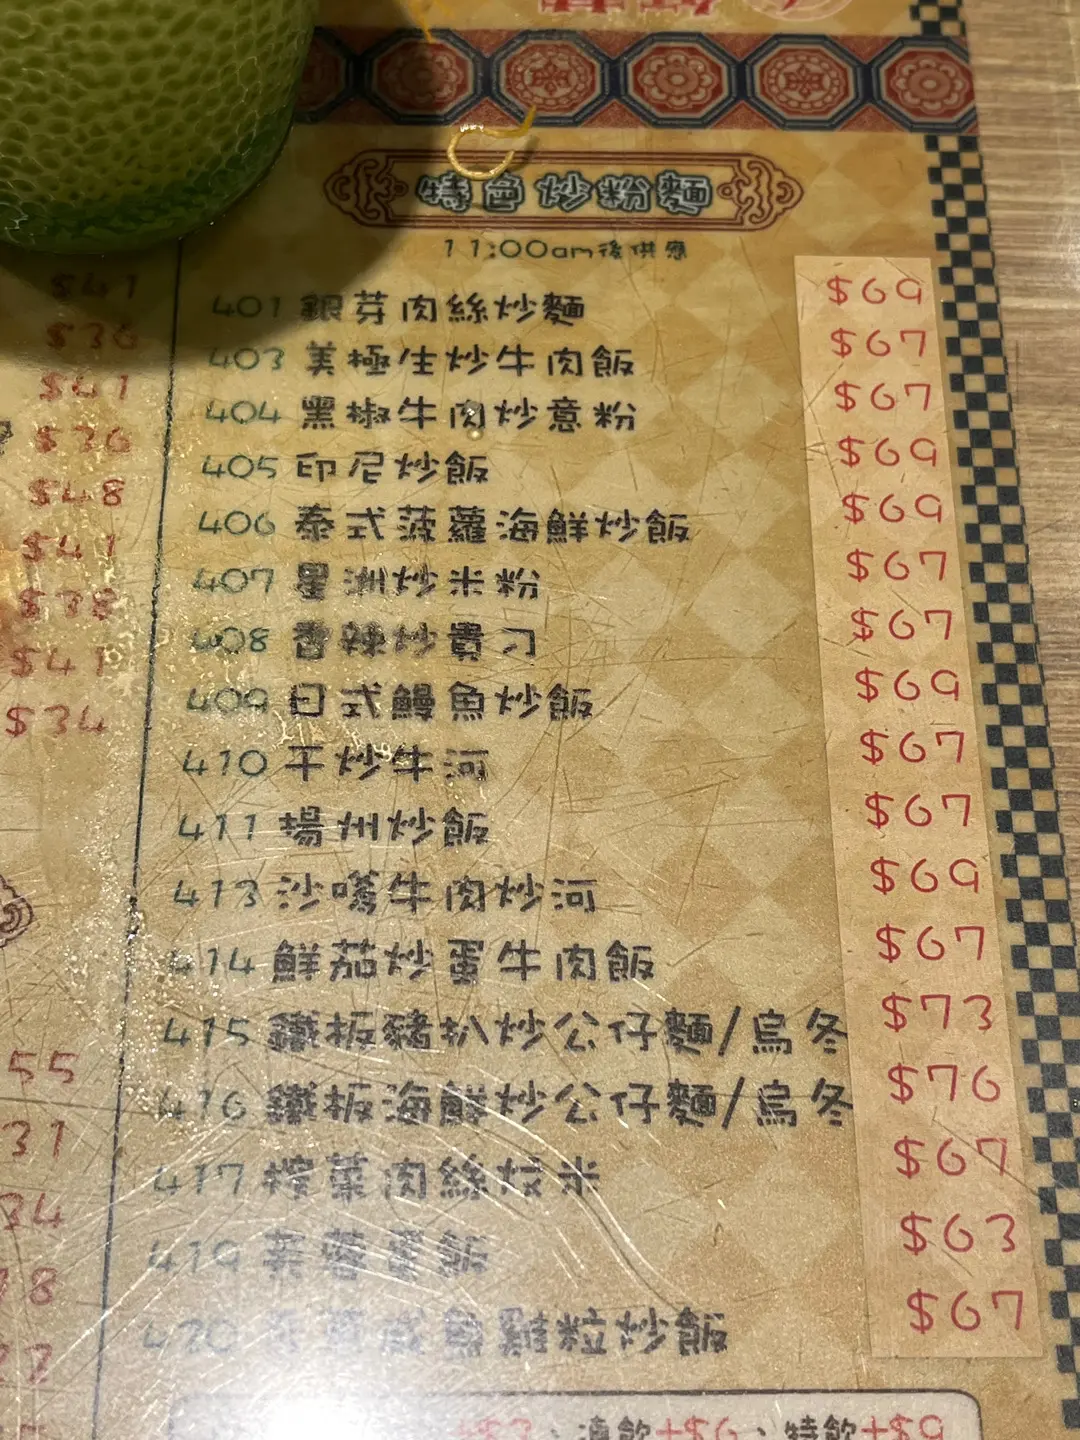 特色炒粉麵
11:00am後供應
401 銀芽肉絲炒麵 $69
403 美極生炒牛肉飯 $67
404 黑椒牛肉炒意粉 $67
405 印尼炒飯 $69
406 泰式菠蘿海鮮炒飯 $69
407 星洲炒米粉 $67
408 香辣炒貴刁 $67
409 日式鰻魚炒飯 $69
410 干炒牛河 $67
411 揚州炒飯 $67
413 沙嗲牛肉炒河 $69
414 鮮茄炒蛋牛肉飯 $67
415 鐵板豬扒炒公仔麵/烏冬 $73
416 鐵板海鮮炒公仔麵/烏冬 $76
417 榨菜肉絲炆米 $67
419 $63
420 咸魚雞粒炒飯 $67
+$3、凍飲+$6、特飲+$9
$41
$36
$41
$36
$48
$41
$38
$41
$34
55
31
34
8